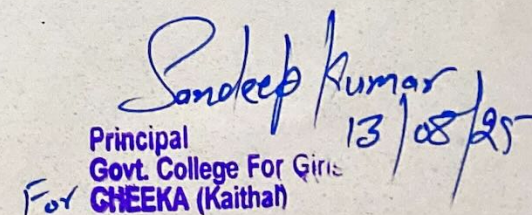 Sandeep Kumar
13/08/25
Principal
Govt. College For Girls
For CHEEKA (Kaithal)